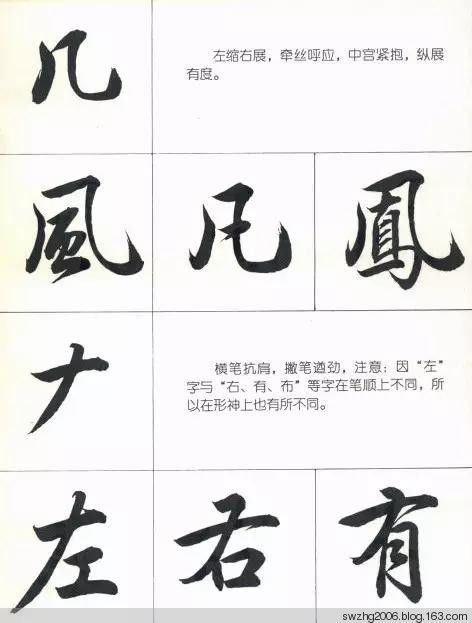 几
左缩右展，牵丝呼应，中宫紧抱，纵展
有度。
風 凡 鳳
𠂇
横笔抗肩，撇笔遒劲，注意：因“左”
字与“右、有、布”等字在笔顺上不同，所
以在形神上也有所不同。
左 右 有
swzhg2006.blog.163.com